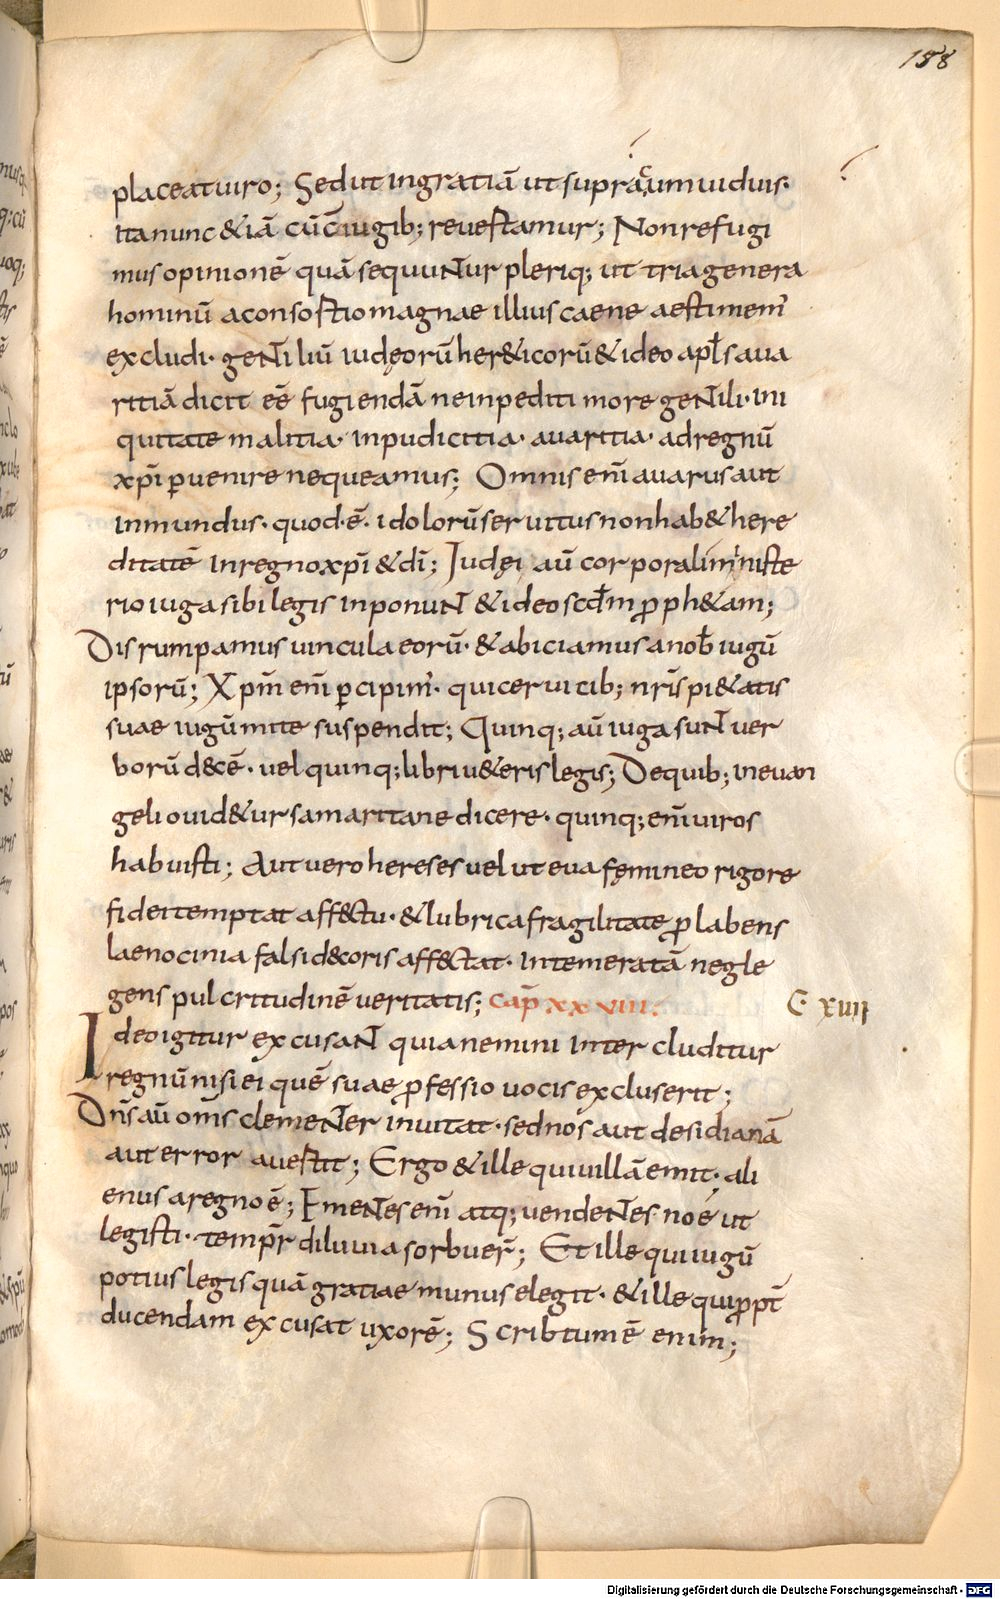 158
placeat uiro; Sed ut in gratiā ut supra cum uiduis·
ita nunc & iā cū c̄iugib; reuestamur; Non refugi
mus opinionē quā sequuntur pleriq; ut tria genera
hominū a consortio magnae illius caene aestimem̄
excludi· gentiliū iudęorū her&icorū & ideo apl̄s aua
ritiā dicit eē fugiendā ne inpediti more gentili· ini
quitate malitia· inpudicitia· auaritia· ad regnū
xp̄i ꝑuenire nequeamus; Omnis enī auarus aut
inmundus· quod·ē· idolorū seruitus non hab& here
ditatē In regno xp̄i & dī; Iudęi aū corporali ministe
rio iuga sibi legis inponunt & ideo scdm̄ ꝓph&am;
Disrumpamus uincula eorū· & abiciamus a nob̄ iugū
ipsorū; Xp̄m enī ꝑcipim̄· qui ceruicib; nr̄is pi&atis
suae iugū mite suspendit; Quinq; aū iuga sunt uer
borū decē· uel quinq; libri u&eris legis; De quib; in euan
gelio uid&ur samaritane dicere· quinq; enī uiros
habuisti; Aut uero hereses uelut eua femineo rigore
fidei temptat aff&tu· & lubrica fragilitate ꝓlabens
laenocinia falsi d&coris aff&tat· Intemeratā negle
gens pulcritudinē ueritatis; cap̄ xxviii.
C xiiii
Ideo igitur excusant quia nemini Intercluditur
regnū nisi ei quē suae ꝓfessio uocis excluserit;
Dn̄s aū om̄s clementer inuitat· sed nos aut desidia nā
aut error auertit; Ergo & ille qui uillā emit· ali
enus a regno ē; Ementes enī atq; uendentes noe ut
legisti· tempr̄ diluuia sorbuer̄; Et ille qui iugū
potius legis quā gratiae munus elegit· & ille qui ꝓpt̄
ducendam excusat uxorē; Scribtum ē enim;
Digitalisierung gefördert durch die Deutsche Forschungsgemeinschaft - DFG